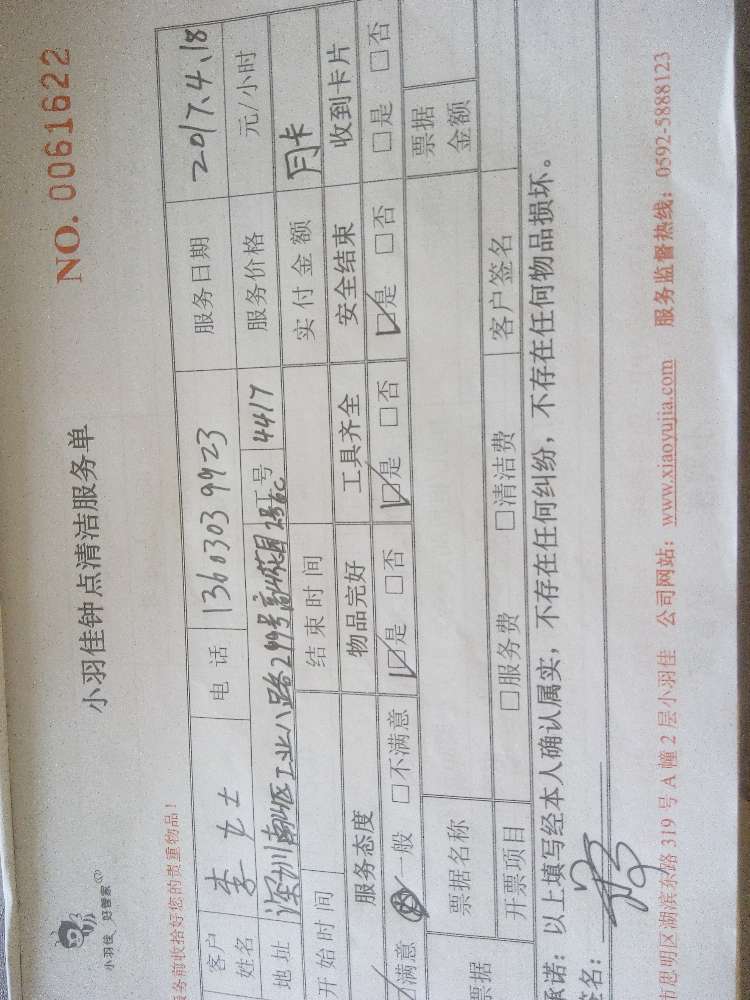 小羽佳 好管家
小羽佳钟点清洁服务单
NO. 0061622
务前收拾好您的贵重物品！
客户姓名 李女士 电话 13603039923 服务日期 2017.4.18
地址 深圳南山区工业八路299号 工号 4417 服务价格 元/小时
开始时间 结束时间 实付金额 月卡
服务态度 物品完好 工具齐全 安全结束 收到卡片
满意 一般 □不满意 ☑是 □否 ☑是 □否 ☑是 □否 □是 □否
票据 票据名称 票据金额
开票项目 □服务费 □清洁费 客户签名
承诺：以上填写经本人确认属实，不存在任何纠纷，不存在任何物品损坏。
签名：
思明区湖滨东路 319 号 A 幢 2 层小羽佳 公司网站：www.xiaoyujia.com 服务监督热线：0592-5888123